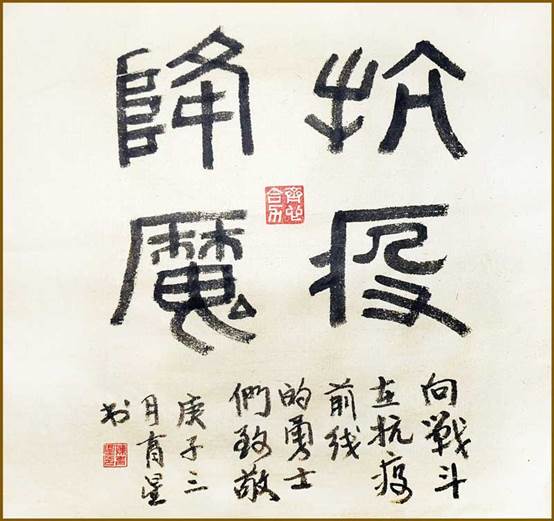 抗疫
降魔
齊心
合力
向戰斗
在抗疫
前线
的勇士
們致敬
庚子三
月育星
书